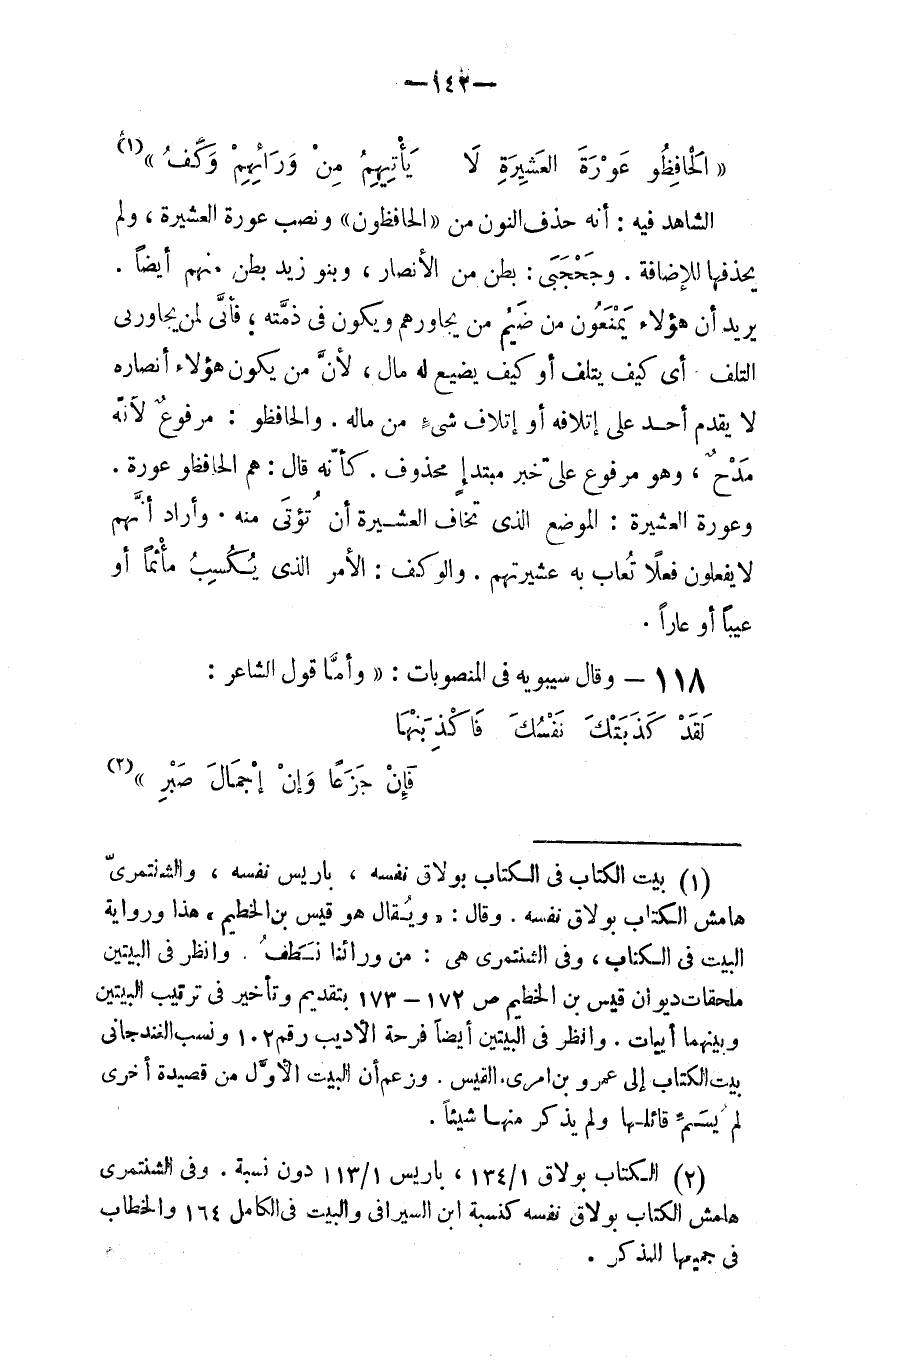 —١٤٣—
« الْحَافِظُو عَوْرَةَ العَشِيرَةِ لَا يَأْتِيهِمُ مِنْ وَرَائِهِمْ وَكَفُ » (١)
الشاهد فيه : أنه حذف النون من «الحافظون» ونصب عورة العشيرة ، ولم
يحذفها للإضافة . وجَحْجَبَى : بطن من الأنصار ، وبنو زيد بطن منهم أيضاً .
يريد أن هؤلاء يَمْنَعُون من ضَيْم من يجاورهم ويكون فى ذمَّته ؛ فأنَّى لمن يجاورنى
التلف . أى كيف يتلف أو كيف يضيع له مال ، لأنَّ من يكون هؤلاء أنصاره
لا يقدم أحد على إتلافه أو إتلاف شىءٍ من ماله . والحافظو : مرفوعٌ لأنّه
مَدْحٌ ، وهو مرفوع على خبر مبتدإٍ محذوف . كأنّه قال : هم الحافظو عورة .
وعورة العشيرة : الموضع الذى تخاف العشيرة أن تُؤتَى منه . وأراد أنَّهم
لا يفعلون فعلًا تُعاب به عشيرتهم . والوكف : الأمر الذى يُكْسِبُ مأْثماً أو
عيباً أو عاراً .
١١٨ — وقال سيبويه فى المنصوبات : « وأمَّا قول الشاعر :
لَقَدْ كَذَبَتْكَ نَفْسُكَ فَاكْذِبَنْهَا
فَإِنْ جَزَعًا وَإِنْ إِجْمَالَ صَبْرِ » (٢)
(١) بيت الكتاب فى الكتاب بولاق نفسه ، باريس نفسه ، والشنتمرىّ
هامش الكتاب بولاق نفسه . وقال : « ويُقال هو قيس بن الخطيم » هذا ورواية
البيت فى الكتاب ، وفى الشنتمرى هى : من ورائنا نَطَفُ . وانظر فى البيتين
ملحقات ديوان قيس بن الخطيم ص ١٧٢ – ١٧٣ بتقديم وتأخير فى ترتيب البيتين
وبينهما أبيات . وانظر فى البيتين أيضاً فرحة الأديب رقم ١٠٢ ونسب الغندجانى
بيت الكتاب إلى عمرو بن امرىء القيس . وزعم أن البيت الأوّل من قصيدة أخرى
لم يُسَمِّ قائلها ولم يذكر منها شيئاً .
(٢) الكتاب بولاق ١٣٤/١ ، باريس ١١٣/١ دون نسبة . وفى الشنتمرى
هامش الكتاب بولاق نفسه كنسبة ابن السيرافى والبيت فى الكامل ١٦٤ والخطاب
فى جميعها للمذكر .